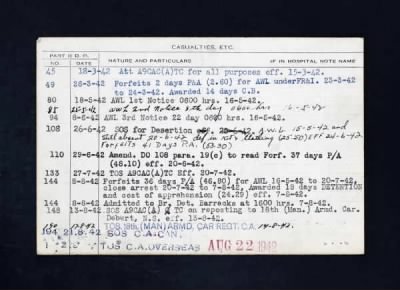 CASUALTIES, ETC.
PART II D. O.
NO. DATE NATURE AND PARTICULARS IF IN HOSPITAL NOTE NAME
45 18-3-42 Att A9CAC(A)TC for all purposes eff. 15-3-42.
49 26-3-42 Forfeits 2 days P&A (2.60) for AWL underFR&I. 23-3-42
to 24-3-42. Awarded 14 days C.B.
80 18-5-42 AWL 1st Notice 0600 hrs. 16-5-42.
85 25-5-42 AWL 2nd Notice 8th day 0600 hrs 16-5-42
94 8-6-42 AWL 3rd Notice 22 day 0600 hrs 16-5-42.
108 26-6-42 SOS for Desertion eff. A.W.L. 15-5-42 and
still absent 20-6-42 def in clothing (25.50) Eff 24-6-42
Forfeits 41 Days P.A. (53.30)
110 29-6-42 Amend. DO 108 para. 19(c) to read Forf. 37 days P/A
(48.10) eff. 20-6-42.
133 27-7-42 TOS A9CAC(A)TC Eff. 20-7-42.
144 8-8-42 Forfeits 36 days P/A (46.80) for AWL 16-5-42 to 20-7-42,
close arrest 20-7-42 to 7-8-42. Awarded 18 days DETENTION
and cost of apprehension (24.29) eff. 7-8-42.
144 8-8-42 Admitted to Br. Det. Barracks at 1600 hrs. 7-8-42.
148 13-8-42 SOS A9CAC(A) TC on reporting to 18th (Man.) Armd. Car.
Debert, N.S. eff. 13-8-42.
190 TOS 18th. (MAN) ARMD. CAR REGT. C.A. 14-8-42.
194 21.8.42 SOS C.A. CAN.
TOS C.A. OVERSEAS AUG 22 1942